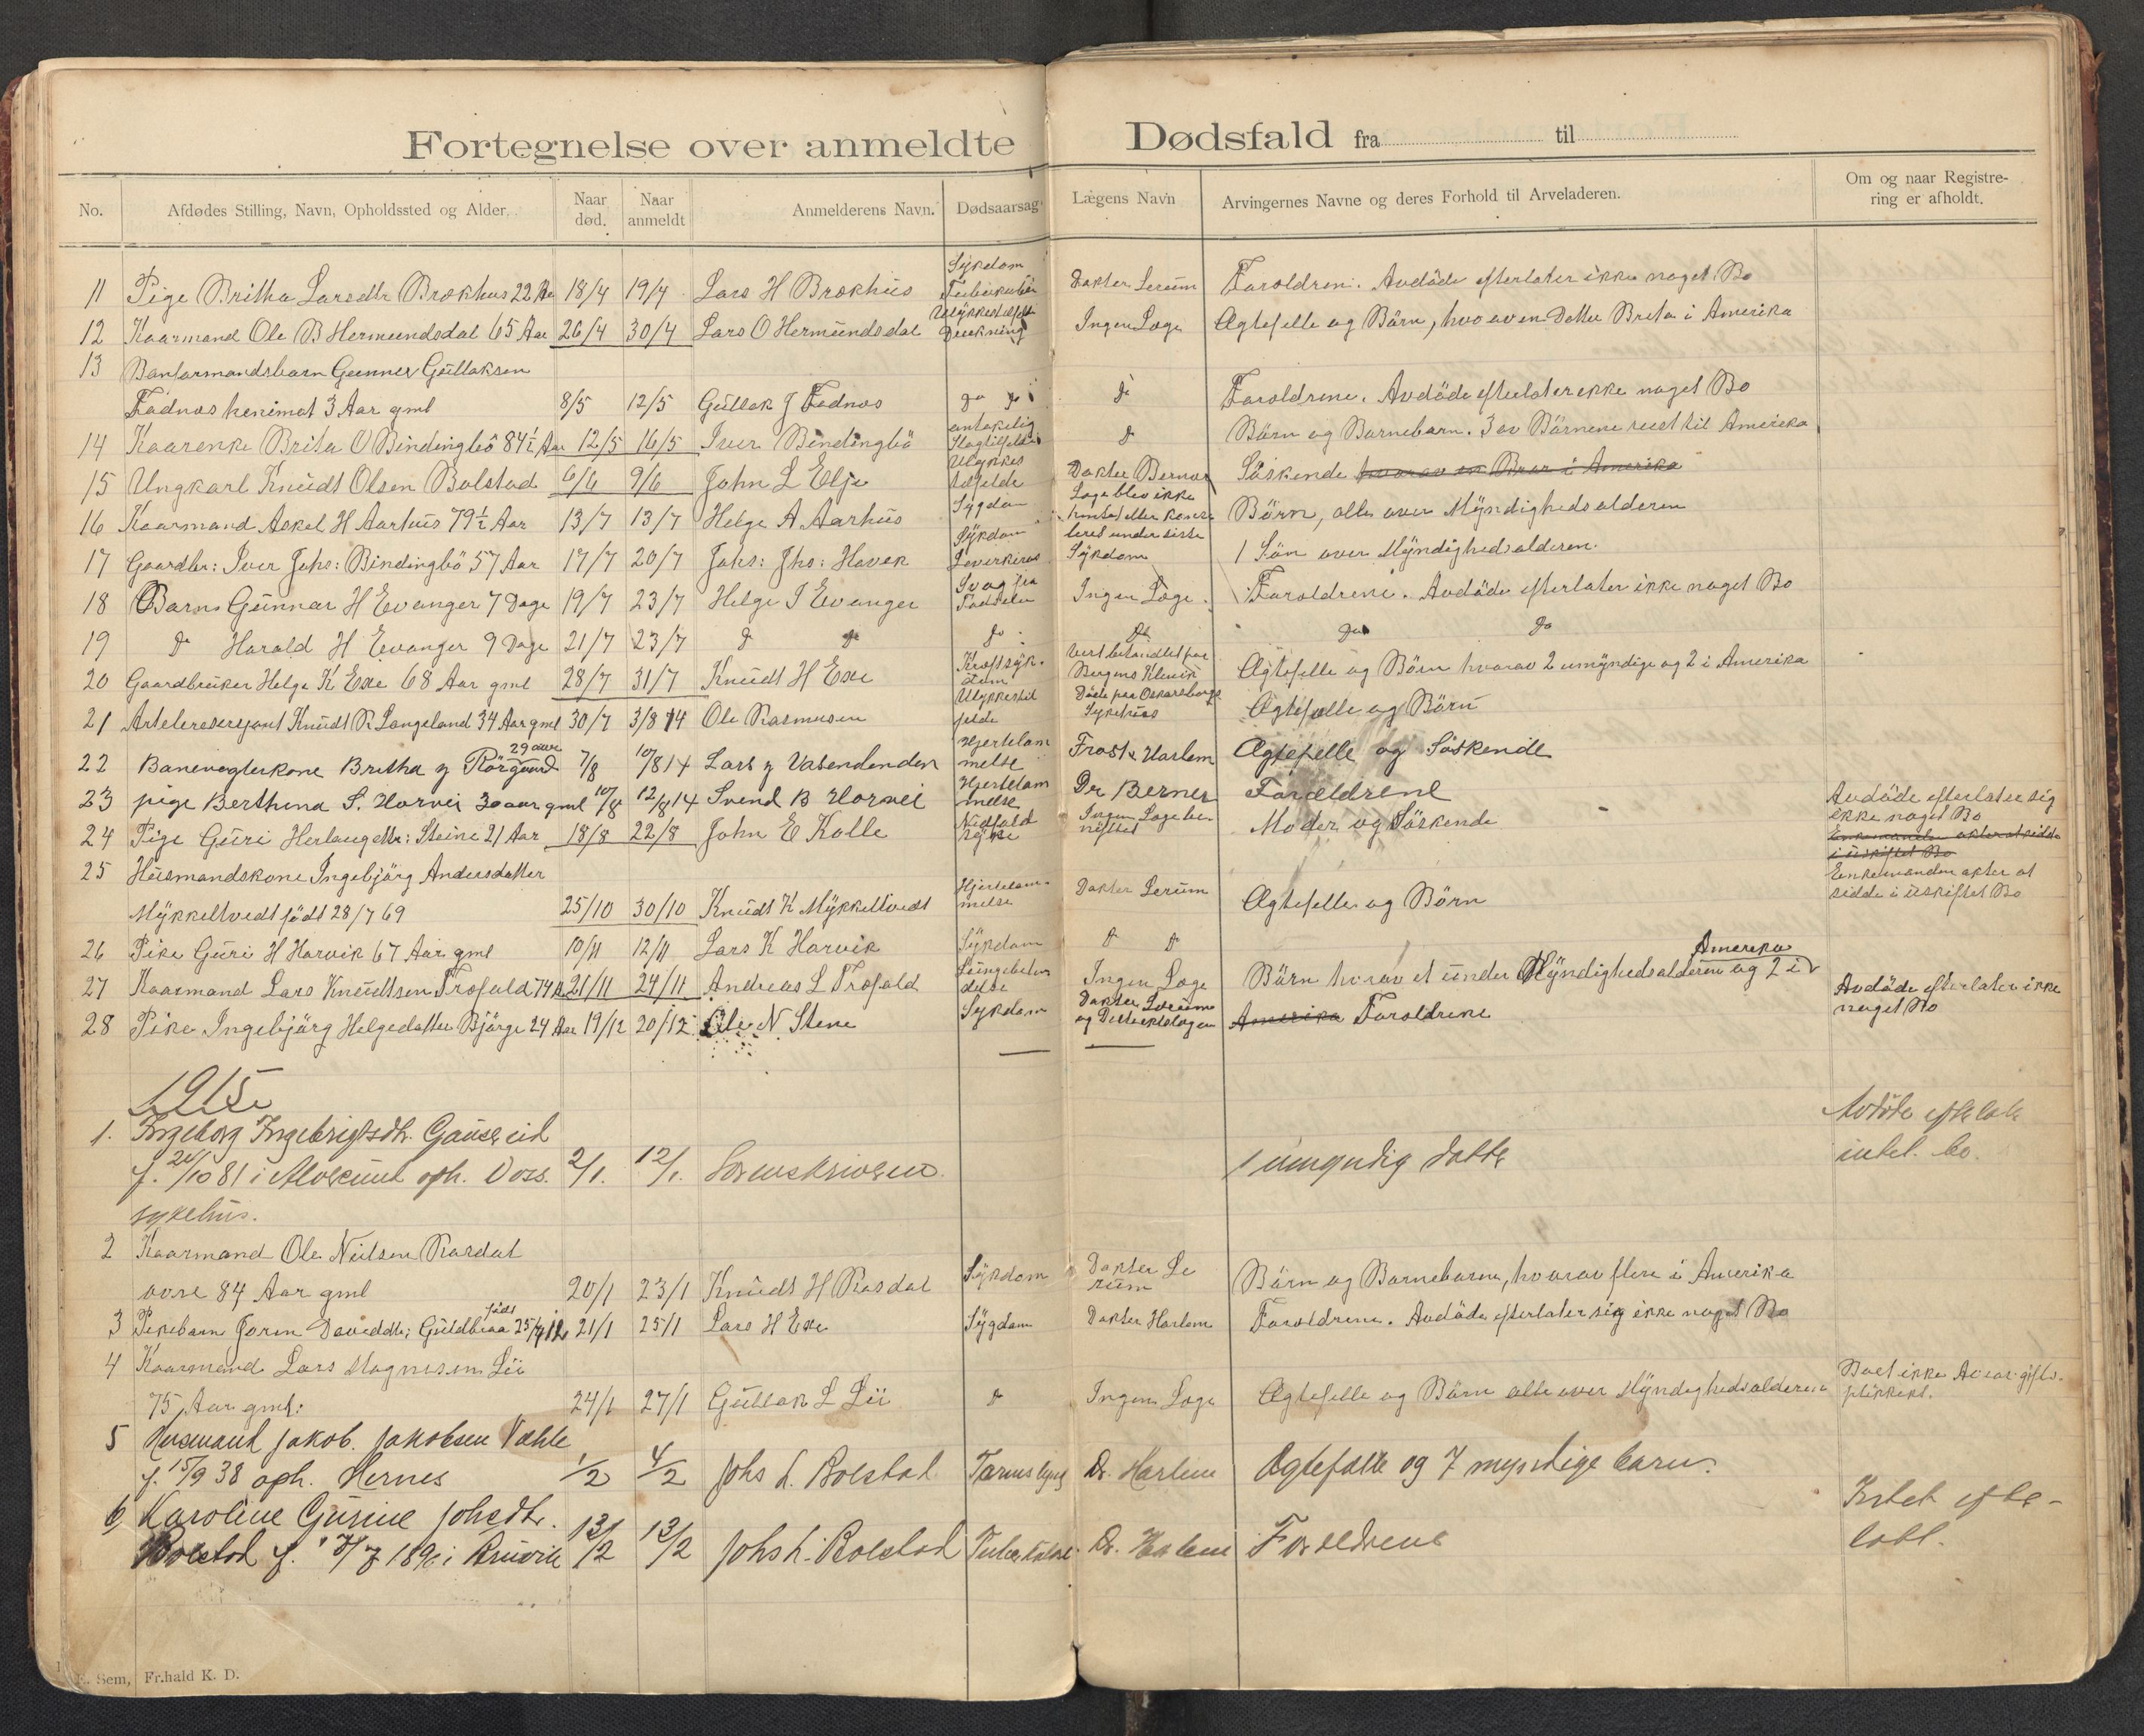 Fortegnelse over anmeldte Dødsfald fra til
No. Afdødes Stilling, Navn, Opholdssted og Alder. Naar død. Naar anmeldt Anmelderens Navn. Dødsaarsag Lægens Navn Arvingernes Navne og deres Forhold til Arveladeren. Om og naar Registrering er afholdt.
11 Pige Britha Larsdtr Brækhus 22 Aar 18/4 19/4 Lars H Brækhus Sykdom Tuberkulose Dokter Lerum Foræoldrene. Avdöde efterlater ikke noget Bo
12 Kaarmand Ole B Hermundsdal 65 Aar 26/4 30/4 Lars O Hermundsdal Ulykkestilfelde Drukning Ingen Læge Ægtefelle og Börn, hvoraven Datter Brita i Amerika
13 Gunner Gullaksen
Fadnæs henimot 3 Aar gml 8/5 12/5 Gullak J Fadnæs do do do Foræoldrene. Avdöde efterlater ikke noget Bo
14 Kaarenke Brita O Bindingbö 84½ Aar 12/5 16/5 Iver Bindingbö antakelig Slagtilfelde do Börn og Barnebarn. 3 av Börnene reist til Amerika
15 Ungkarl Knudt Olsen Bolstad 6/6 9/6 John L Elje Ulykkes tilfelde Dokter Berner Söskende hvorav en Bror i Amerika
16 Kaarmand Askel H Aarhus 79½ Aar 13/7 13/7 Helge A Aarhus Sygdom Læge blev ikke hentet eller Börn, alle over Myndighedsalderen
17 Gaardbr: Iver Johs: Bindingbö 57 Aar 17/7 20/7 Johs: Jhs: Sykdom leret under siste Sykdom 1 Sön over Myndighedsalderen.
18 Barn Gunnar H Evanger 7 Dage 19/7 23/7 Helge I Evanger Svag fra Fødselen Ingen Læge. Foræoldrene. Avdöde efterlater ikke noget Bo
19 do Harald H Evanger 9 Dage 21/7 23/7 do do do do do do
20 Gaardbruker Helge K Exe 68 Aar gml 28/7 31/7 Knudt H Exe Kræftsykdom Vert behandlet paa Bergens Klinik Ægtefelle og Börn hvorav 2 umyndige og 2 i Amerika
21 Knudt R Langeland 34 Aar gml 30/7 3/8 14 Ole Rasmusen Ulykkestilfelde Döde paa Oskarsborgs Sykehus Ægtefælle og Börn
22 Banevogterkone Britha 29 aar 7/8 10/8 14 Lars Vasendenden Hjertelammelse Harlem Ægtefelle og Söskende
23 pige Berthina S. Horvei 30 aar gml 10/8 12/8 14 Svend B Horvei Hjertelammelse Dr Berner Forældrene Avdöde efterlater sig ikke noget Bo
24 Pige Guri Herlaugdtr: Steine 21 Aar 18/8 22/8 John E Kolle Ingen Læge benöttet Moder og Söskende Enkemanden akter at sidde i uskiftet Bo
25 Husmandskone Ingebjörg Andersdatter
Mykkeltvedt födt 28/7 69 25/10 30/10 Knudt K Mykkeltvedt Hjertelammelse Dokter Lerum Ægtefelle og Börn Enkemanden akter at sidde i uskiftet Bo
26 Pike Guri H Horvik 67 Aar gml 10/11 12/11 Lars K Horvik Sykdom do do
27 Kaarmand Lars Knudtsen Trofald 74 Aar 21/11 24/11 Andreas L Trofald Ingen Læge Börn hvorav et under Myndighedsalderen og 2 i Amerika
28 Pike Ingebjörg Helgedatter Björge 24 Aar 19/12 20/12 Ole N Stene Sykdom Dokter Lerum og Distriktslægen Amerika Foræoldrene Avdöde efterlater ikke noget Bo
1915
1. Ingeborg Ingebrigtsdtr. Gauseeid
f. 24/10 81 i oph. Voss. 2/1. 12/1. 1 umyndig datter Avdöde efterlater intet bo.
sykehus.
2 Kaarmand Ole Nielsen Rasdal
övre 84 Aar gml 20/1 23/1 Knudt H Rasdal Sykdom Dokter Lerum Börn og Barnebarn, hvorav flere i Amerika
3 Pikebarn Jorin Daviddtr; födt 21/1 25/1 Lars H Exe Sygdom Dokter Harlem Foræoldrene. Avdöde efterlater sig ikke noget Bo
4 Kaarmand Lars Magnesen Lü
75 Aar gml: 24/1 27/1 Gullak L Lü do Ingen Læge Ægtefelle og Börn alle over Myndighedsalderen Boet ikke Arveavgiftspliktigt.
5 Husmand Jakob. Jakobsen Væhle
f. 15/9 38 oph. Hernes 1/2 4/2 Johs L. Bolstad Dr. Harlem Ægtefælle og 7 myndige barn.
6 Karoline Gurine Johsdtr.
Bolstad f. 189 i 13/2 13/2 Johs L. Bolstad Tuberkulose Dr. Harlem Forældrene Intet efterlatt.
E. Sem, Fr.hald K. D.